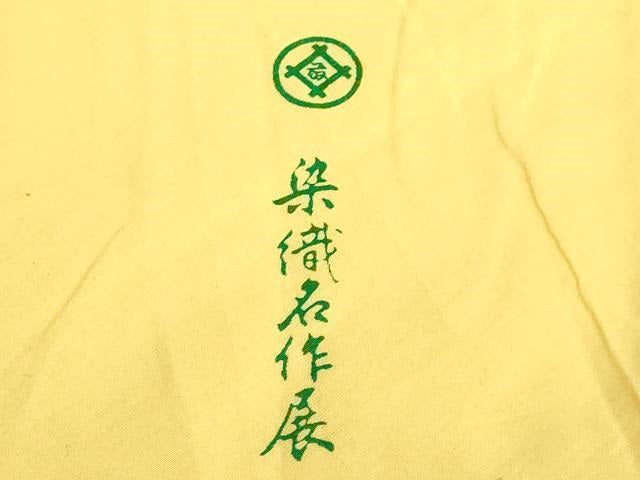 染織名作展